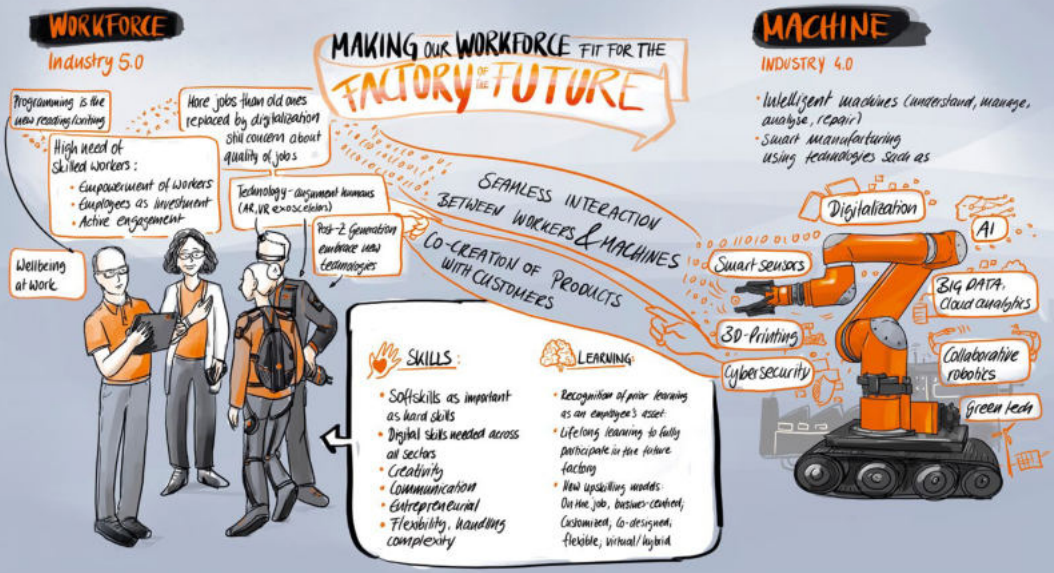 WORKFORCE
Industry 5.0
MAKING OUR WORKFORCE FIT FOR THE
FACTORY OF THE FUTURE
MACHINE
INDUSTRY 4.0
Programming is the
new reading/writing
More jobs than old ones
replaced by digitalization
still concern about
quality of jobs
High need of
skilled workers:
• Empowerment of workers
• Employees as investment
• Active engagement
Technology-augment humans
(AR, VR exosceletors)
Post-Z Generation
embrace new
technologies
Wellbeing
at work
SEAMLESS INTERACTION
BETWEEN WORKERS & MACHINES
CO-CREATION OF PRODUCTS
WITH CUSTOMERS
• Intelligent machines (understand, manage,
analyse, repair)
• Smart manufarturing
using technologies such as
Digitalization
AI
Smart sensors
BIG DATA,
Cloud analytics
3D-Printing
Collaborative
robotics
Cybersecurity
Green tech
SKILLS:
• Softskills as important
as hard skills
• Digital skills needed across
all sectors
• Creativity
• Communication
• Entrepreneurial
• Flexibility, handling
complexity
LEARNING:
• Recognition of prior learning
as an employee's asset
• Lifelong learning to fully
participate in the future
factory
• New upskilling models:
On the job, busines-centred,
Customized, co-designed,
flexible, virtual/hybrid